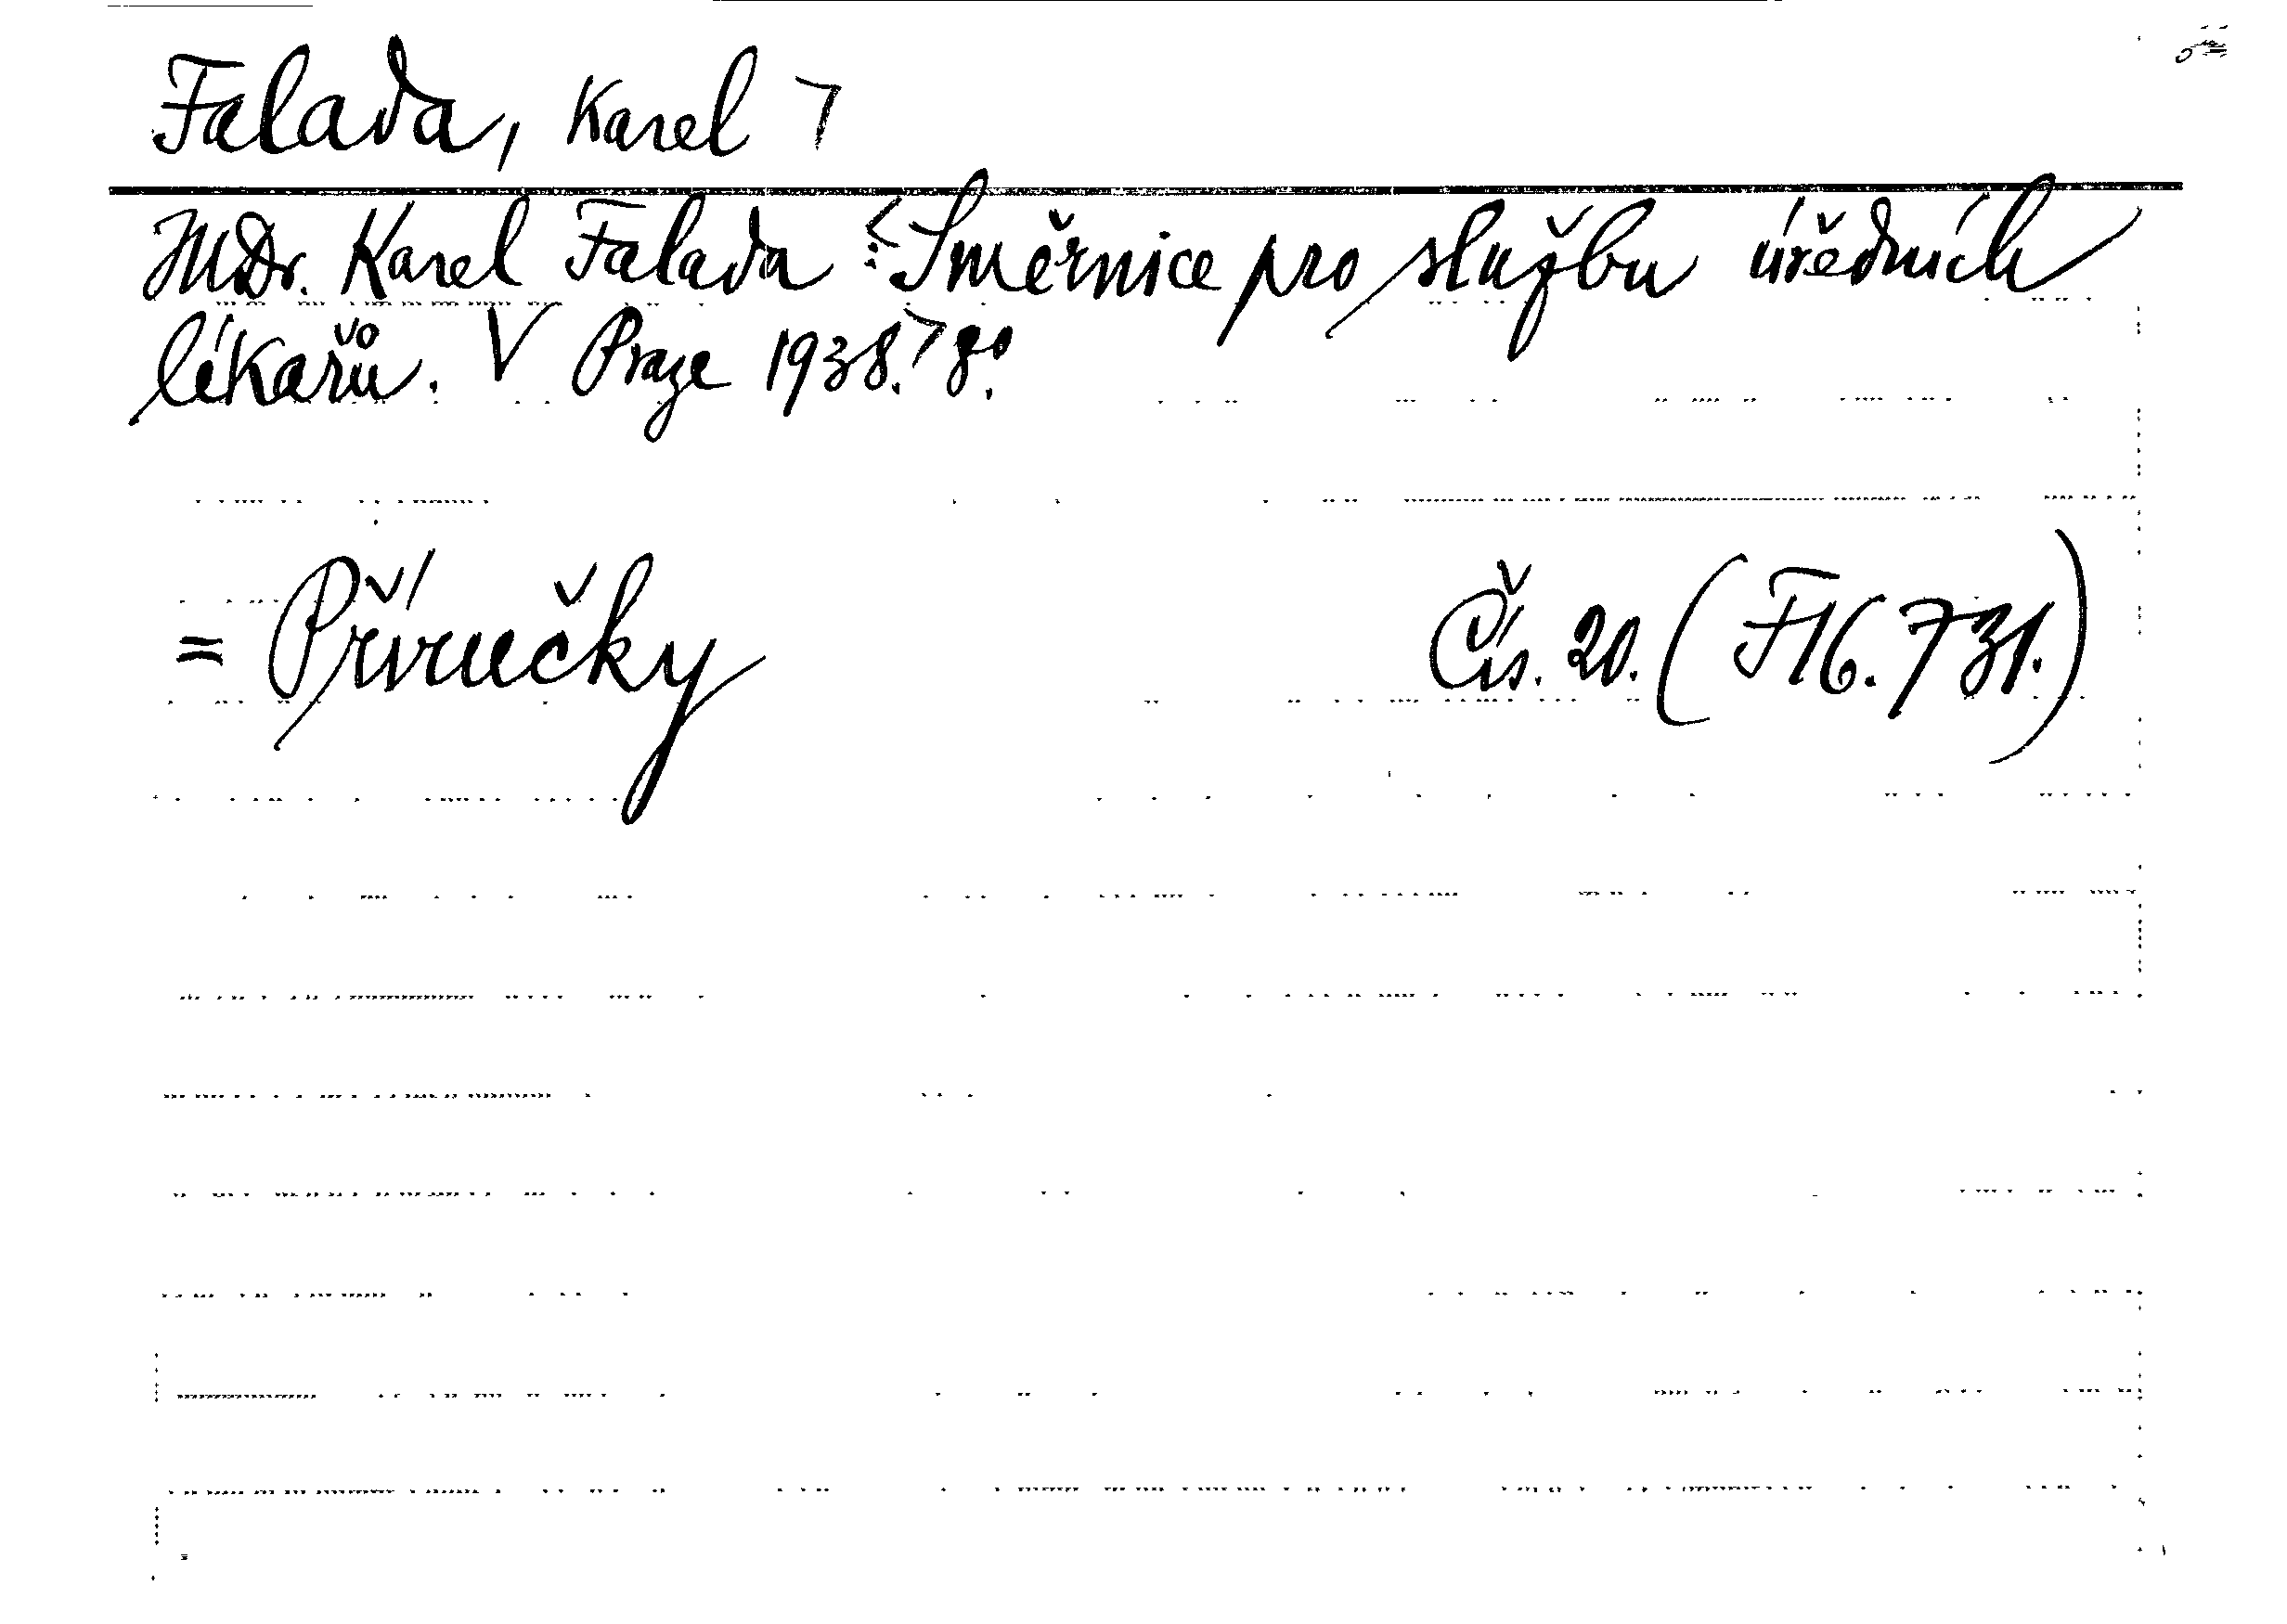 Falada, Karel
MDr. Karel Falada : Směrnice pro službu úředních
lékařů. V Praze 1938. 8°.
= Příručky Čís. 20. (F16.731.)